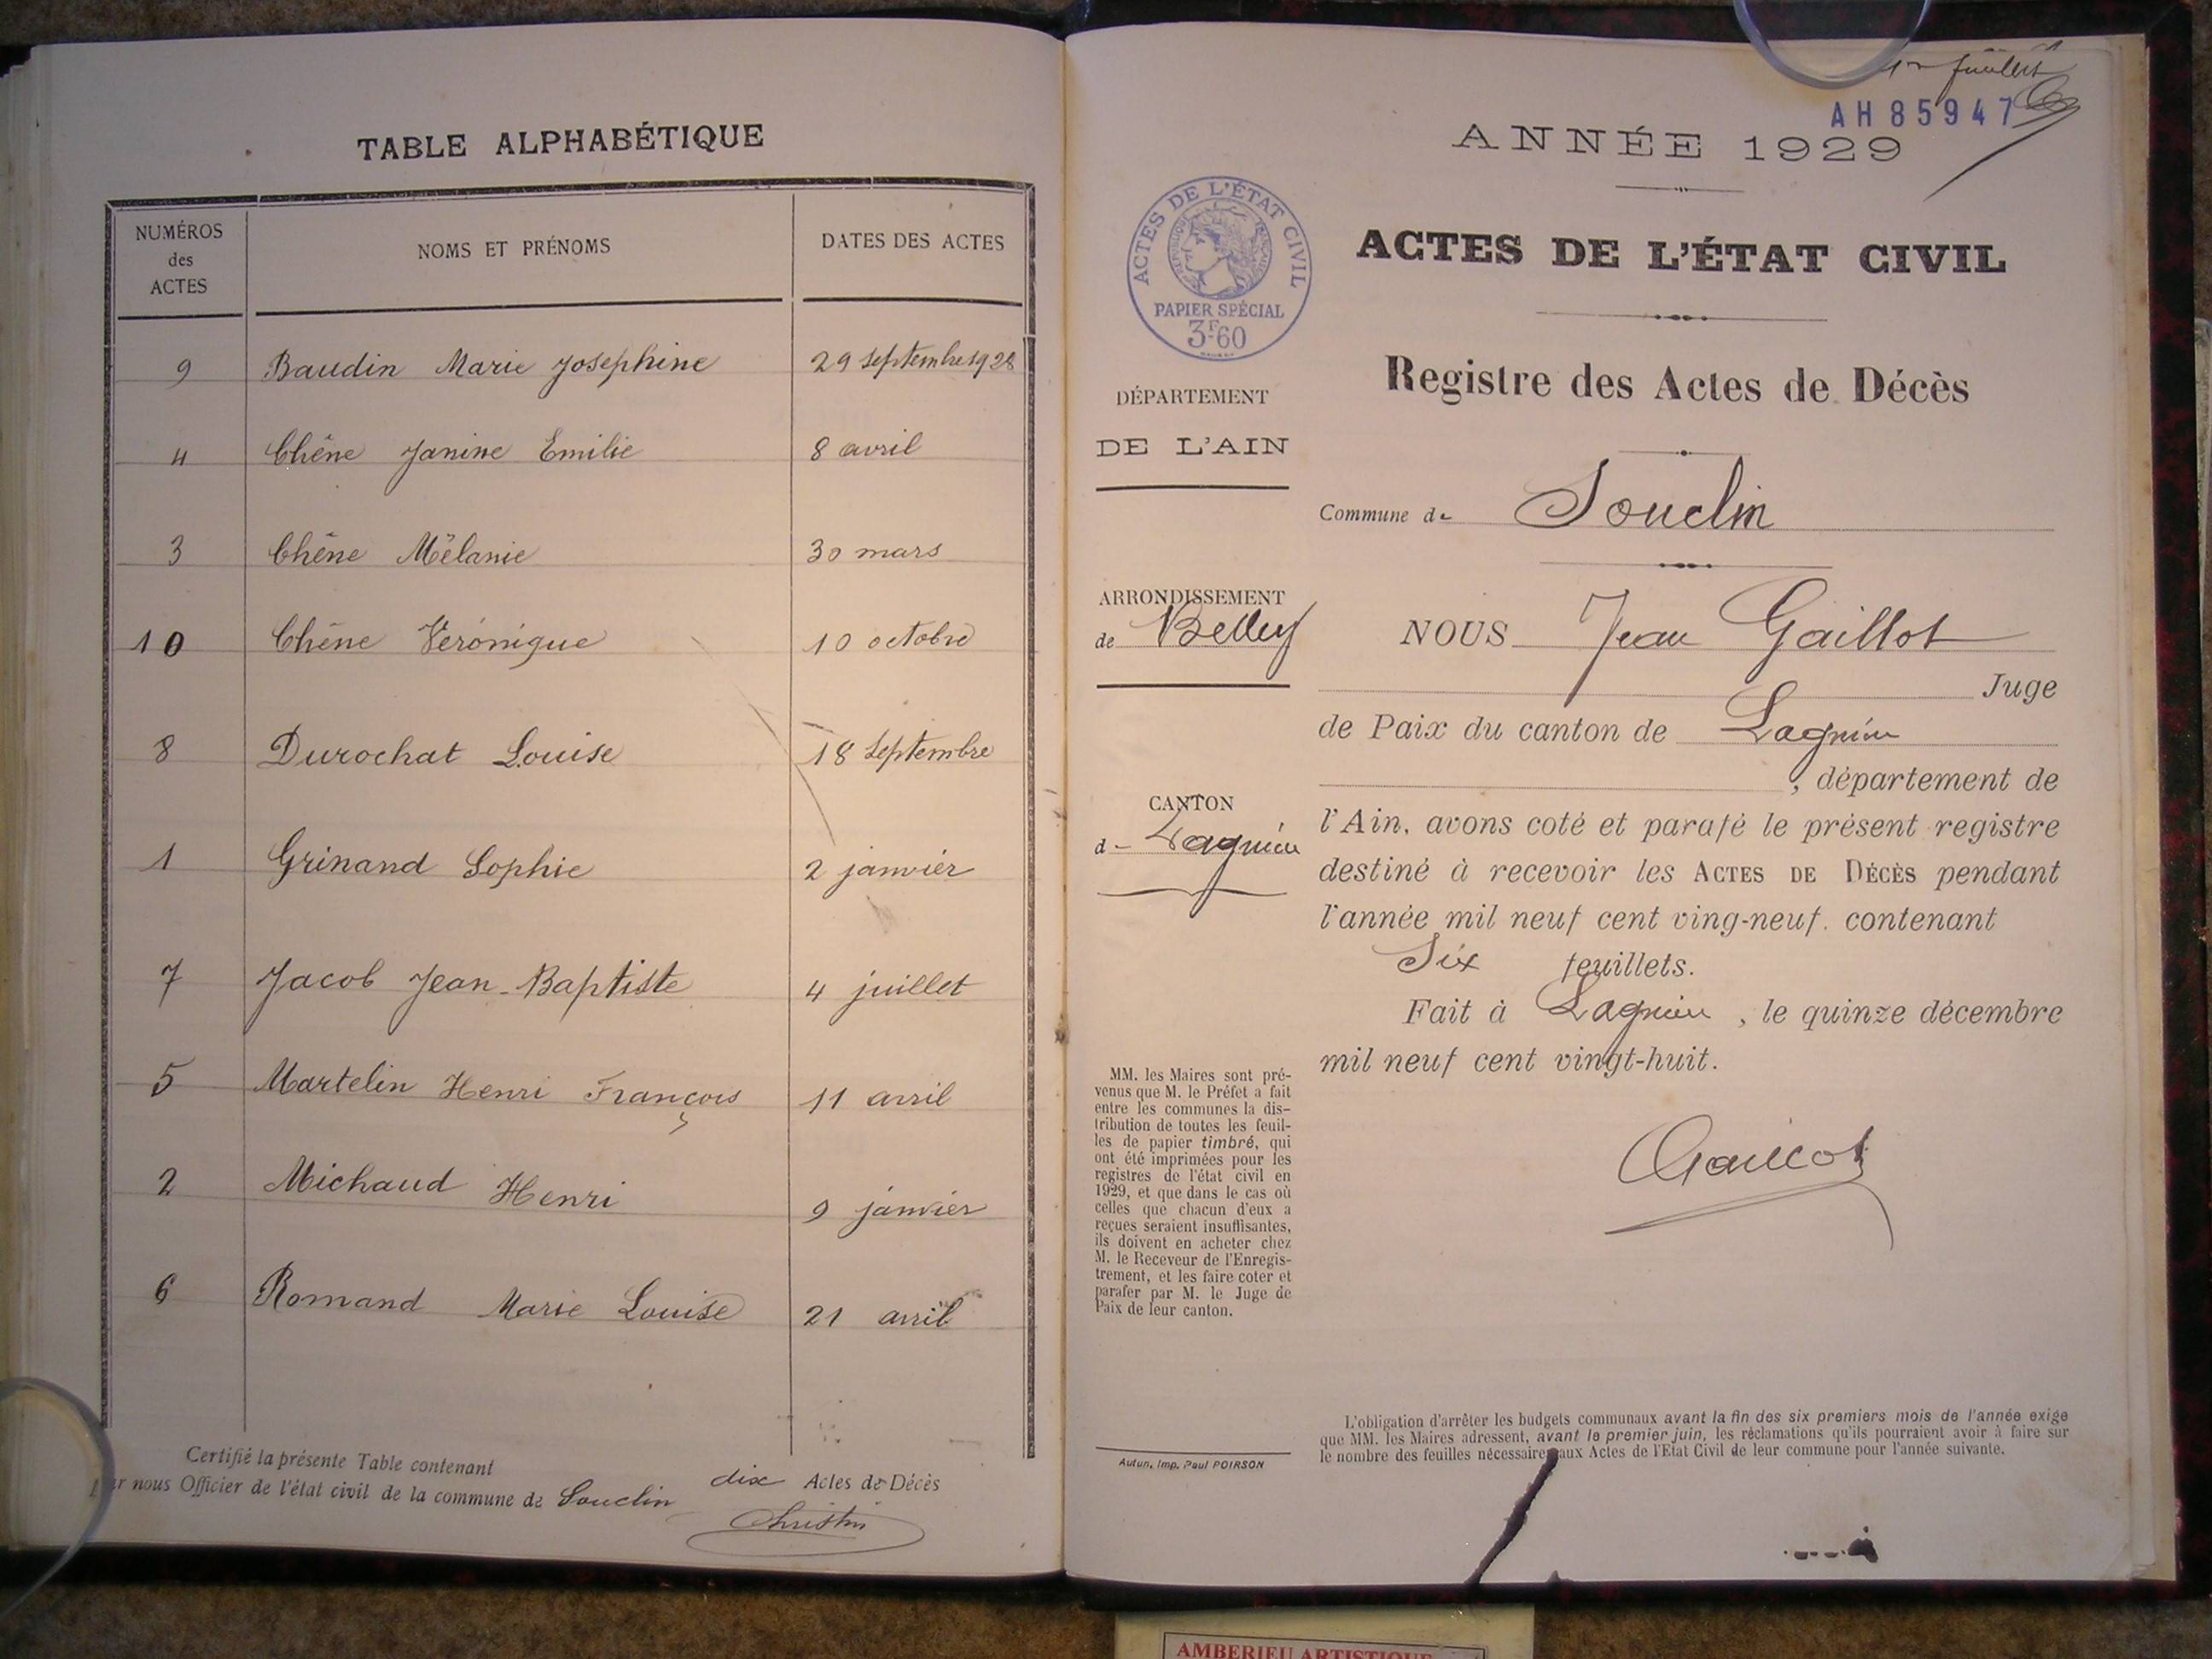 TABLE ALPHABÉTIQUE
NUMÉROS des ACTES NOMS ET PRÉNOMS DATES DES ACTES
9 Baudin Marie Joséphine 29 Septembre 1928
4 Chêne Janine Emilie 8 avril
3 Chêne Mélanie 30 mars
10 Chêne Véronique 10 octobre
8 Durochat Louise 18 Septembre
1 Grinand Sophie 2 janvier
7 Jacob Jean-Baptiste 4 juillet
5 Martelin Henri François 11 avril
2 Michaud Henri 9 janvier
6 Romand Marie Louise 21 avril
Certifié la présente Table contenant dix Actes de Décès
nous Officier de l'état civil de la commune de Souclin
Christin
1er Juillet
AH85947
ANNÉE 1929
ACTES DE L'ÉTAT CIVIL
RÉPUBLIQUE FRANÇAISE
PAPIER SPÉCIAL
3F60
ACTES DE L'ÉTAT CIVIL
Registre des Actes de Décès
DÉPARTEMENT
DE L'AIN
Commune de Souclin
ARRONDISSEMENT
de Belley
CANTON
d- Lagnieu
NOUS Jean Gaillot
Juge
de Paix du canton de Lagnieu
, département de
l'Ain, avons coté et parafé le présent registre
destiné à recevoir les ACTES DE DÉCÈS pendant
l'année mil neuf cent ving-neuf. contenant
Six feuillets.
Fait à Lagnieu, le quinze décembre
mil neuf cent vingt-huit.
Gaillot
MM. les Maires sont pré-
venus que M. le Préfet a fait
entre les communes la dis-
tribution de toutes les feuil-
les de papier timbré, qui
ont été imprimées pour les
registres de l'état civil en
1929, et que dans le cas où
celles que chacun d'eux a
reçues seraient insuffisantes,
ils doivent en acheter chez
M. le Receveur de l'Enregis-
trement, et les faire coter et
parafer par M. le Juge de
Paix de leur canton.
Autun, Imp. Paul POIRSON
L'obligation d'arrêter les budgets communaux avant la fin des six premiers mois de l'année exige
que MM. les Maires adressent, avant le premier juin, les réclamations qu'ils pourraient avoir à faire sur
le nombre des feuilles nécessaires aux Actes de l'Etat Civil de leur commune pour l'année suivante.
AMBERIEU ARTISTIQUE